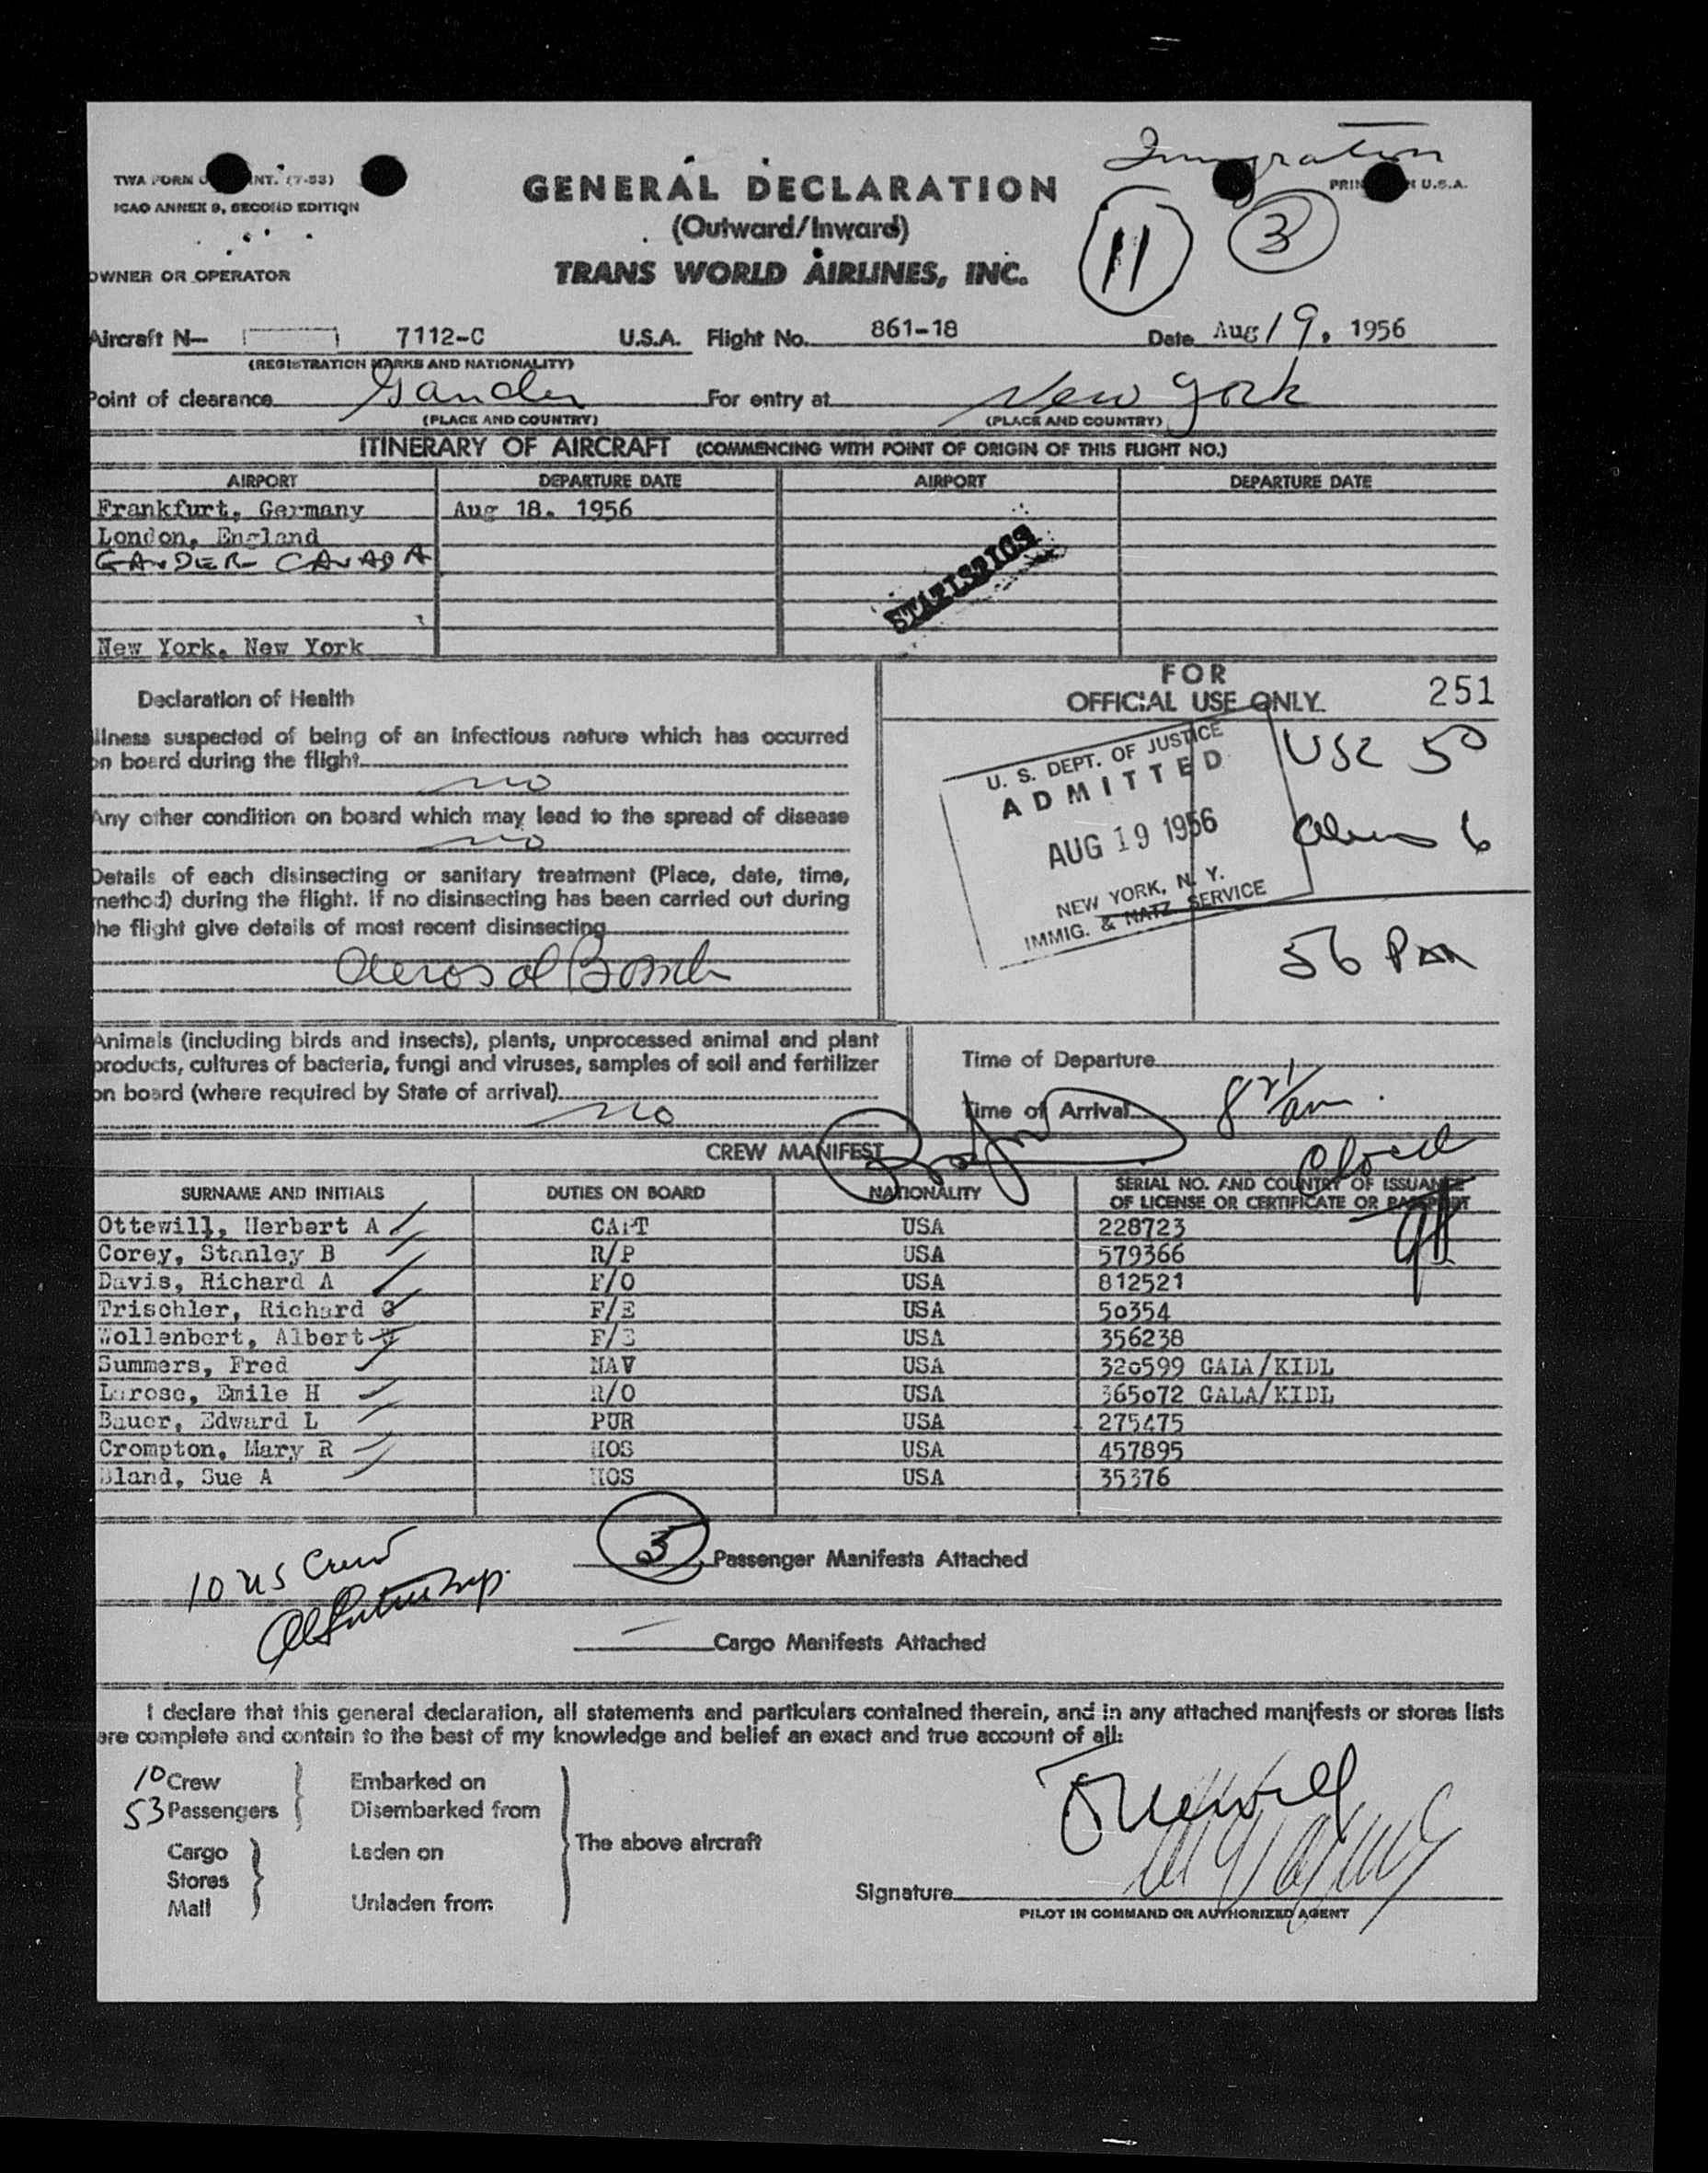 Immigration
TWA FORM INT. (7-53)
PRIN U.S.A.
ICAO ANNEX 9, SECOND EDITION
GENERAL DECLARATION
(Outward/Inward)
11 3
OWNER OR OPERATOR
TRANS WORLD AIRLINES, INC.
Aircraft N— 7112-C U.S.A. Flight No. 861-18 Date Aug 19, 1956
(REGISTRATION MARKS AND NATIONALITY)
Point of clearance Gander For entry at New York
(PLACE AND COUNTRY) (PLACE AND COUNTRY)
ITINERARY OF AIRCRAFT (COMMENCING WITH POINT OF ORIGIN OF THIS FLIGHT NO.)
AIRPORT DEPARTURE DATE AIRPORT DEPARTURE DATE
Frankfurt, Germany Aug 18. 1956
London, England
GANDER CANADA
STATISTICS
New York, New York
Declaration of Health
Illness suspected of being of an infectious nature which has occurred
on board during the flight
no
Any other condition on board which may lead to the spread of disease
no
Details of each disinsecting or sanitary treatment (Place, date, time,
method) during the flight. If no disinsecting has been carried out during
the flight give details of most recent disinsecting
Aerosol Bomb
FOR
OFFICIAL USE ONLY 251
U. S. DEPT. OF JUSTICE
ADMITTED
AUG 19 1956
NEW YORK, N. Y.
IMMIG. & NATZ. SERVICE
USC 50
Aliens 6
56 Pax
Animals (including birds and insects), plants, unprocessed animal and plant
products, cultures of bacteria, fungi and viruses, samples of soil and fertilizer
on board (where required by State of arrival)
no
Time of Departure
Time of Arrival 821 am
Closed
CREW MANIFEST
SURNAME AND INITIALS DUTIES ON BOARD NATIONALITY SERIAL NO. AND COUNTRY OF ISSUANCE
OF LICENSE OR CERTIFICATE OR PASSPORT
Ottewill, Herbert A CAPT USA 228723
Corey, Stanley B R/P USA 579366
Davis, Richard A F/O USA 812521
Trischler, Richard G F/E USA 50354
Wollenbert, Albert F/E USA 356238
Summers, Fred NAV USA 320599 GALA/KIDL
Larose, Emile H R/O USA 365072 GALA/KIDL
Bauer, Edward L PUR USA 275475
Crompton, Mary R HOS USA 457895
Bland, Sue A HOS USA 35376
10 US Crew
3 Passenger Manifests Attached
Cargo Manifests Attached
I declare that this general declaration, all statements and particulars contained therein, and in any attached manifests or stores lists
are complete and contain to the best of my knowledge and belief an exact and true account of all:
10 Crew
53 Passengers
Embarked on
Disembarked from
Cargo
Stores
Mail
Laden on
Unladen from
The above aircraft
Ottewill
Signature
PILOT IN COMMAND OR AUTHORIZED AGENT